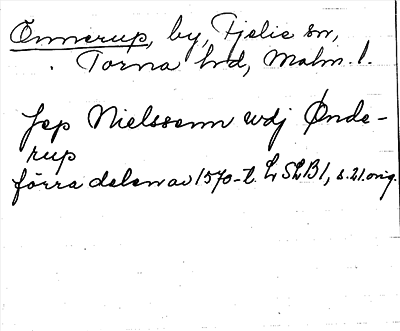 Önnerup, by, Fjelie sn,
Torna hd, Malm. l.
Jep Nielssenn udj Ønde-
rup
förra delen av 1570-t. LSLB 1, s. 21. orig.